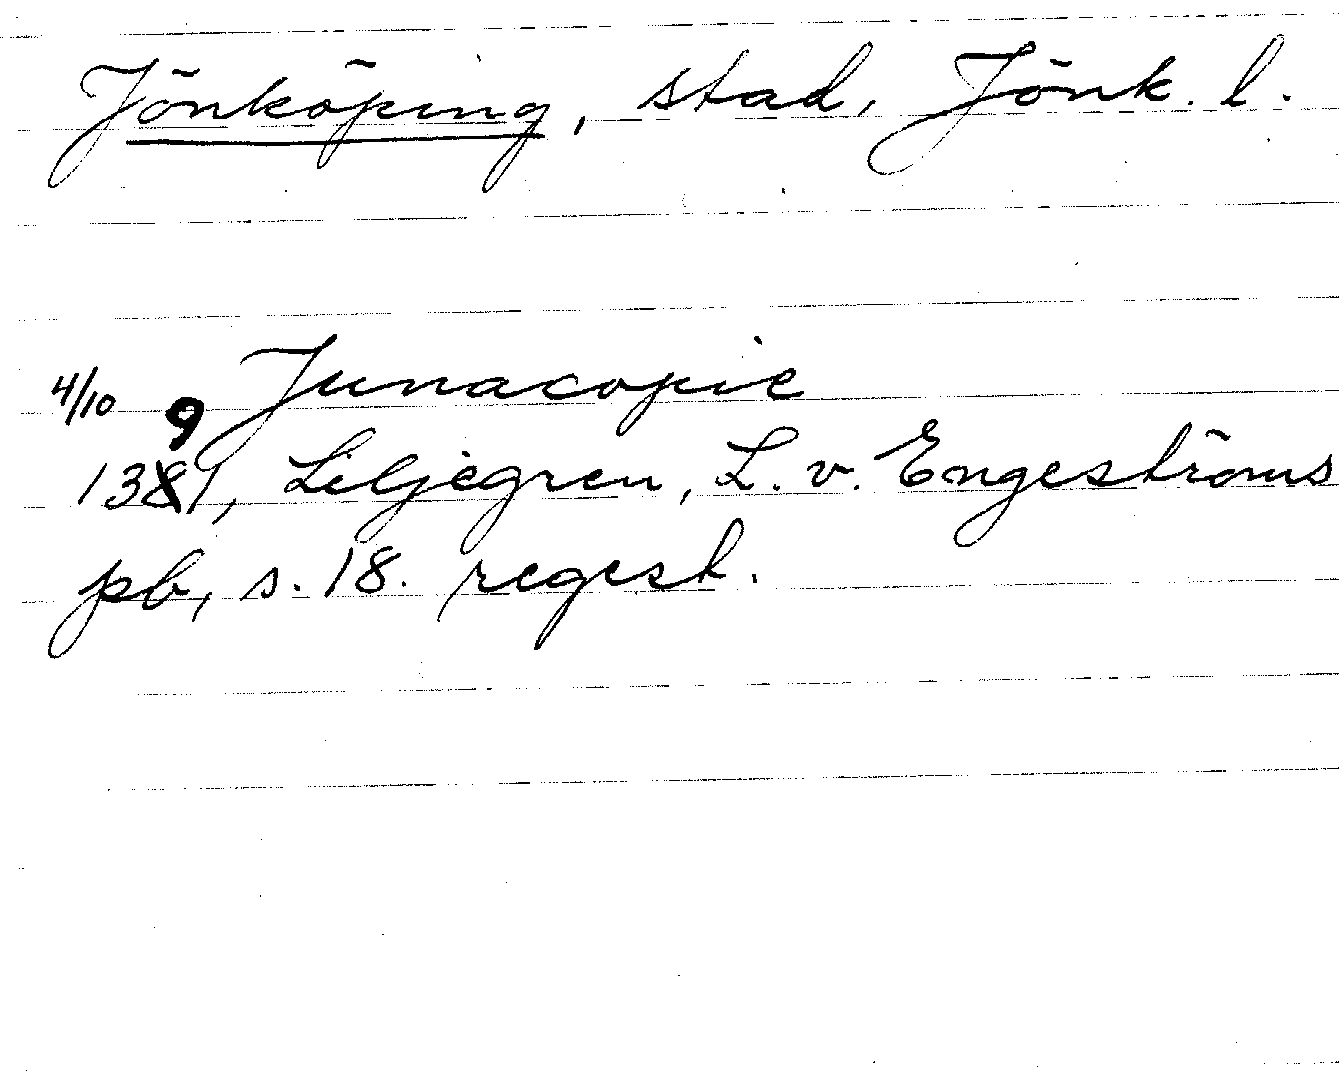 Jönköping, stad, Jönk. l.
4/10 Junacopie
1391, Liljegren, L. v. Engeströms
pb, s. 18. regest.